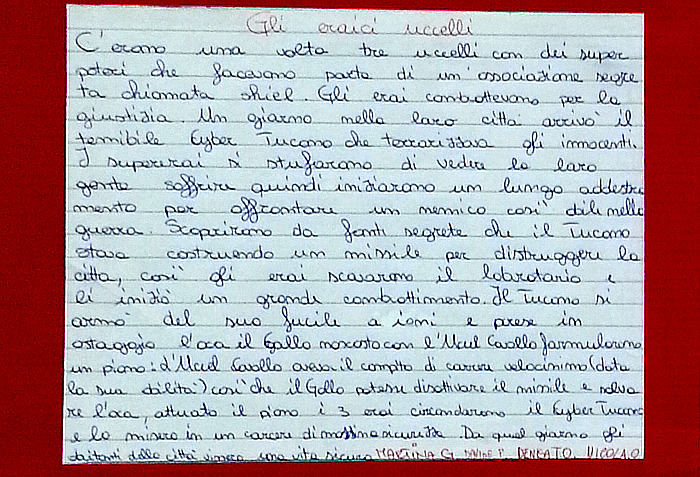 Gli eroici uccelli
C'erano una volta tre uccelli con dei super
poteri che facevano parte di un'associazione segre
ta chiamata shiel. Gli eroi combattevano per la
giustizia. Un giorno nella loro città arrivò il
terribile Cyber Tucano che terrorizzava gli innocenti.
I supereroi si stufarono di vedere la loro
gente soffrire quindi iniziarono un lungo addestra
mento per affrontare un nemico così abile nella
guerra. Scoprirono da fonti segrete che il Tucano
stava costruendo un missile per distruggere la
città, così gli eroi scovarono il labratorio e
li iniziò un grande combattimento. Il Tucano si
armò del suo fucile a ioni e prese in
ostaggio l'oca il Gallo nascosto con l'Uccel Cavallo formularono
un piano: l'Uccel Cavallo aveva il compito di correre velocissimo (data
la sua abilità) così che il Gallo potesse disattivare il missile e salva
re l'oca, attuato il piano i 3 eroi circondarono il Cyber Tucano
e lo misero in un carcere di massima sicurezza. Da quel giorno gli
abitanti della città vissero una vita sicura MARTINA G. DAVIDE P. NICOLA O